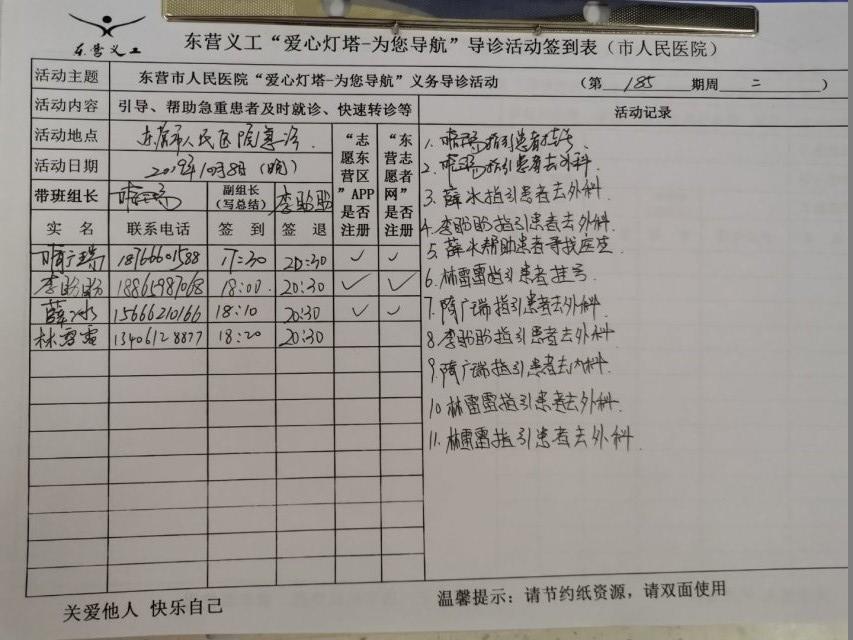 东营义工
东营义工“爱心灯塔-为您导航”导诊活动签到表（市人民医院）
活动主题 东营市人民医院“爱心灯塔-为您导航”义务导诊活动 （第 185 期周 二 ）
活动内容 引导、帮助急重患者及时就诊、快速转诊等
活动地点 东营市人民医院急诊
活动日期 2019年10月8日（晚）
带班组长 副组长（写总结） 李盼盼
“志愿东营区”APP是否注册
“东营志愿者网”是否注册
实 名 联系电话 签 到 签 退
隋广瑞 18766601588 17:30 20:30 ✓ ✓
李盼盼 18865987068 18:00 20:30 ✓ ✓
薛冰 15666210166 18:10 20:30 ✓ ✓
林雷雷 13406128877 18:20 20:30
活动记录
1. 指引患者挂号
2. 指引患者去外科.
3. 薛冰指引患者去外科.
4. 李盼盼指引患者去外科.
5. 薛冰帮助患者寻找医生
6. 林雷雷指引患者挂号
7. 隋广瑞指引患者去外科.
8. 李盼盼指引患者去外科
9. 隋广瑞指引患者去内科.
10. 林雷雷指引患者去外科.
11. 林雷雷指引患者去外科.
关爱他人 快乐自己
温馨提示：请节约纸资源，请双面使用